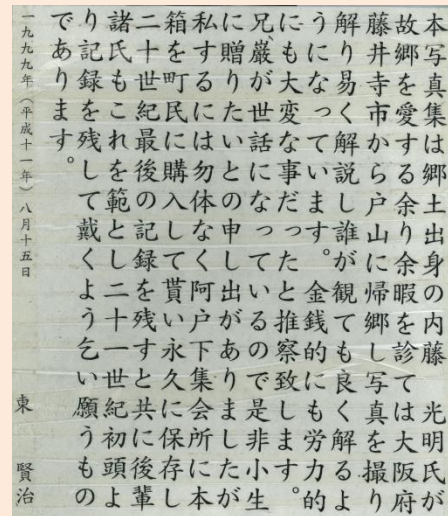 本写真集は郷土出身の内藤　光明氏が
故郷を愛する余り余暇を診ては大阪府
藤井寺市から戸山に帰郷し写真を撮り
解り易く解説し誰が観ても良く解るよ
うになっています。金銭的にも労力的
にも大変な事だったと推察致します。
兄、厳が世話になっているので是非小生
に贈りたいとの申し出がありましたが
私するには勿体なく阿戸下集会所に本
箱を町民に購入して貰い永久に保存し
二十世紀最後の記録を残すと共に後輩
諸氏もこれを範とし二十一世紀初頭よ
り記録を残して戴くよう乞い願うもの
であります。
一九九九年（平成十一年）八月十五日　東　賢治